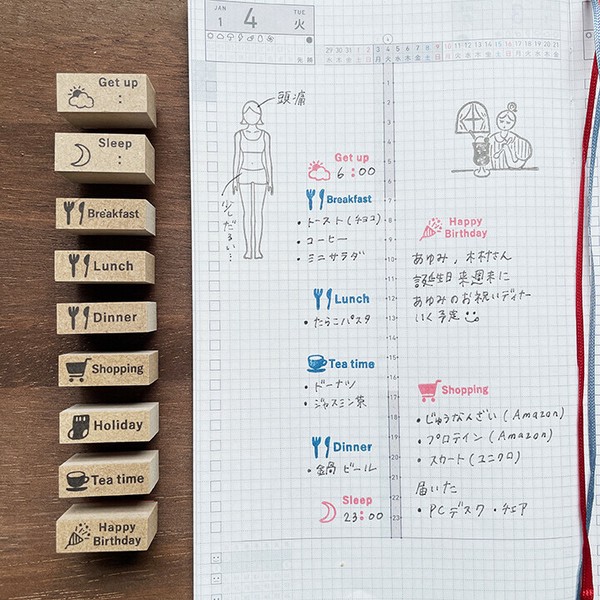 Get up
:
Sleep
:
Breakfast
Lunch
Dinner
Shopping
Holiday
Tea time
Happy
Birthday
JAN
1
4
TUE
火
29 30 31 1 2 3 4 5 6 7 8 9 10 11 12 13 14 15 16 17 18 19 20 21
水 木 金 土 日 月 火 水 木 金 土 日 月 火 水 木 金 土 日 月 火 水 木 金
頭痛
少しだるい…
Get up
6:00
Breakfast
・トースト(チョコ)
・コーヒー
・ミニサラダ
Lunch
・たらこパスタ
Tea time
・ドーナツ
・ジャスミン茶
Dinner
・鍋 ビール
Sleep
23:00
1
2
3
4
5
6
7
8
9
10
11
12
13
14
15
16
17
18
19
20
21
22
23
Happy
Birthday
あゆみ, 木村さん
誕生日 来週末に
あゆみのお祝いディナー
いく予定
Shopping
・じゅうなんざい(Amazon)
・プロテイン(Amazon)
・スカート(ユニクロ)
届いた
・PCデスク・チェア